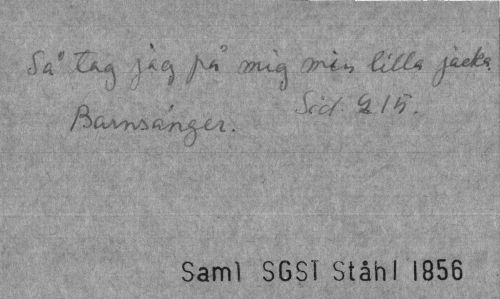 Så tag jag på mig min lilla jacka.
Barnsånger. Sid. 215.
Saml SGST Ståhl 1856